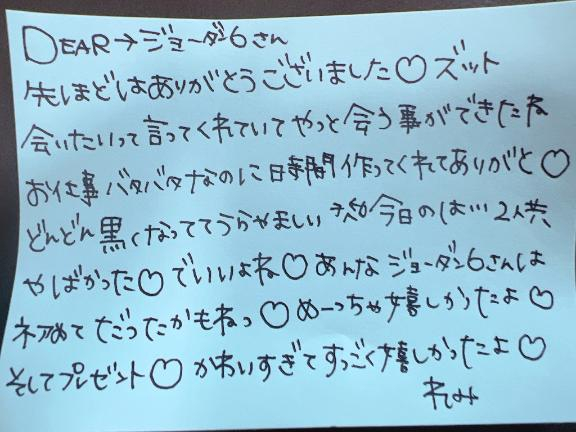 DEAR→ジョーダン6さん
先ほどはありがとうございました♡ズット
会いたいって言ってくれていてやっと会う事ができたね
お仕事バタバタなのに時間作ってくれてありがと♡
どんどん黒くなっててうらやましい 今日のは…2人共
やばかった♡でいいよね♡あんなジョーダン6さんは
初めてだったかもねっ♡めーっちゃ嬉しかったよ♡
そしてプレゼント♡かわいすぎてすっごく嬉しかったよ♡
れみ